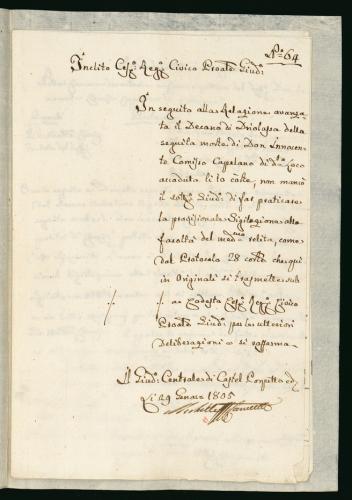 N.º 64
Inclito Ces.º Reg.º Civico Proato Giud.º
In seguito alla Relazione avanza-
ta il Decano di Driolassa della
seguita morte di Don Innocen-
te Comisso Capelano di d.to loco
accaduta li 10 co͠te, non mancò
il sott.º Giud.º di far praticare
la provisionale Sigilazione alle
facoltà del med.mo relita, come
dal Protocolo 28 cor.te che qui
in Originali si trasmette sub
a codesta Ces.º Reg.º Civico
Proato Giud.º per le ulteriori
deliberazioni e si rafferma
Il Giud.º Centrale di Castel Porpetto ed
Li 29 Genaro 1805